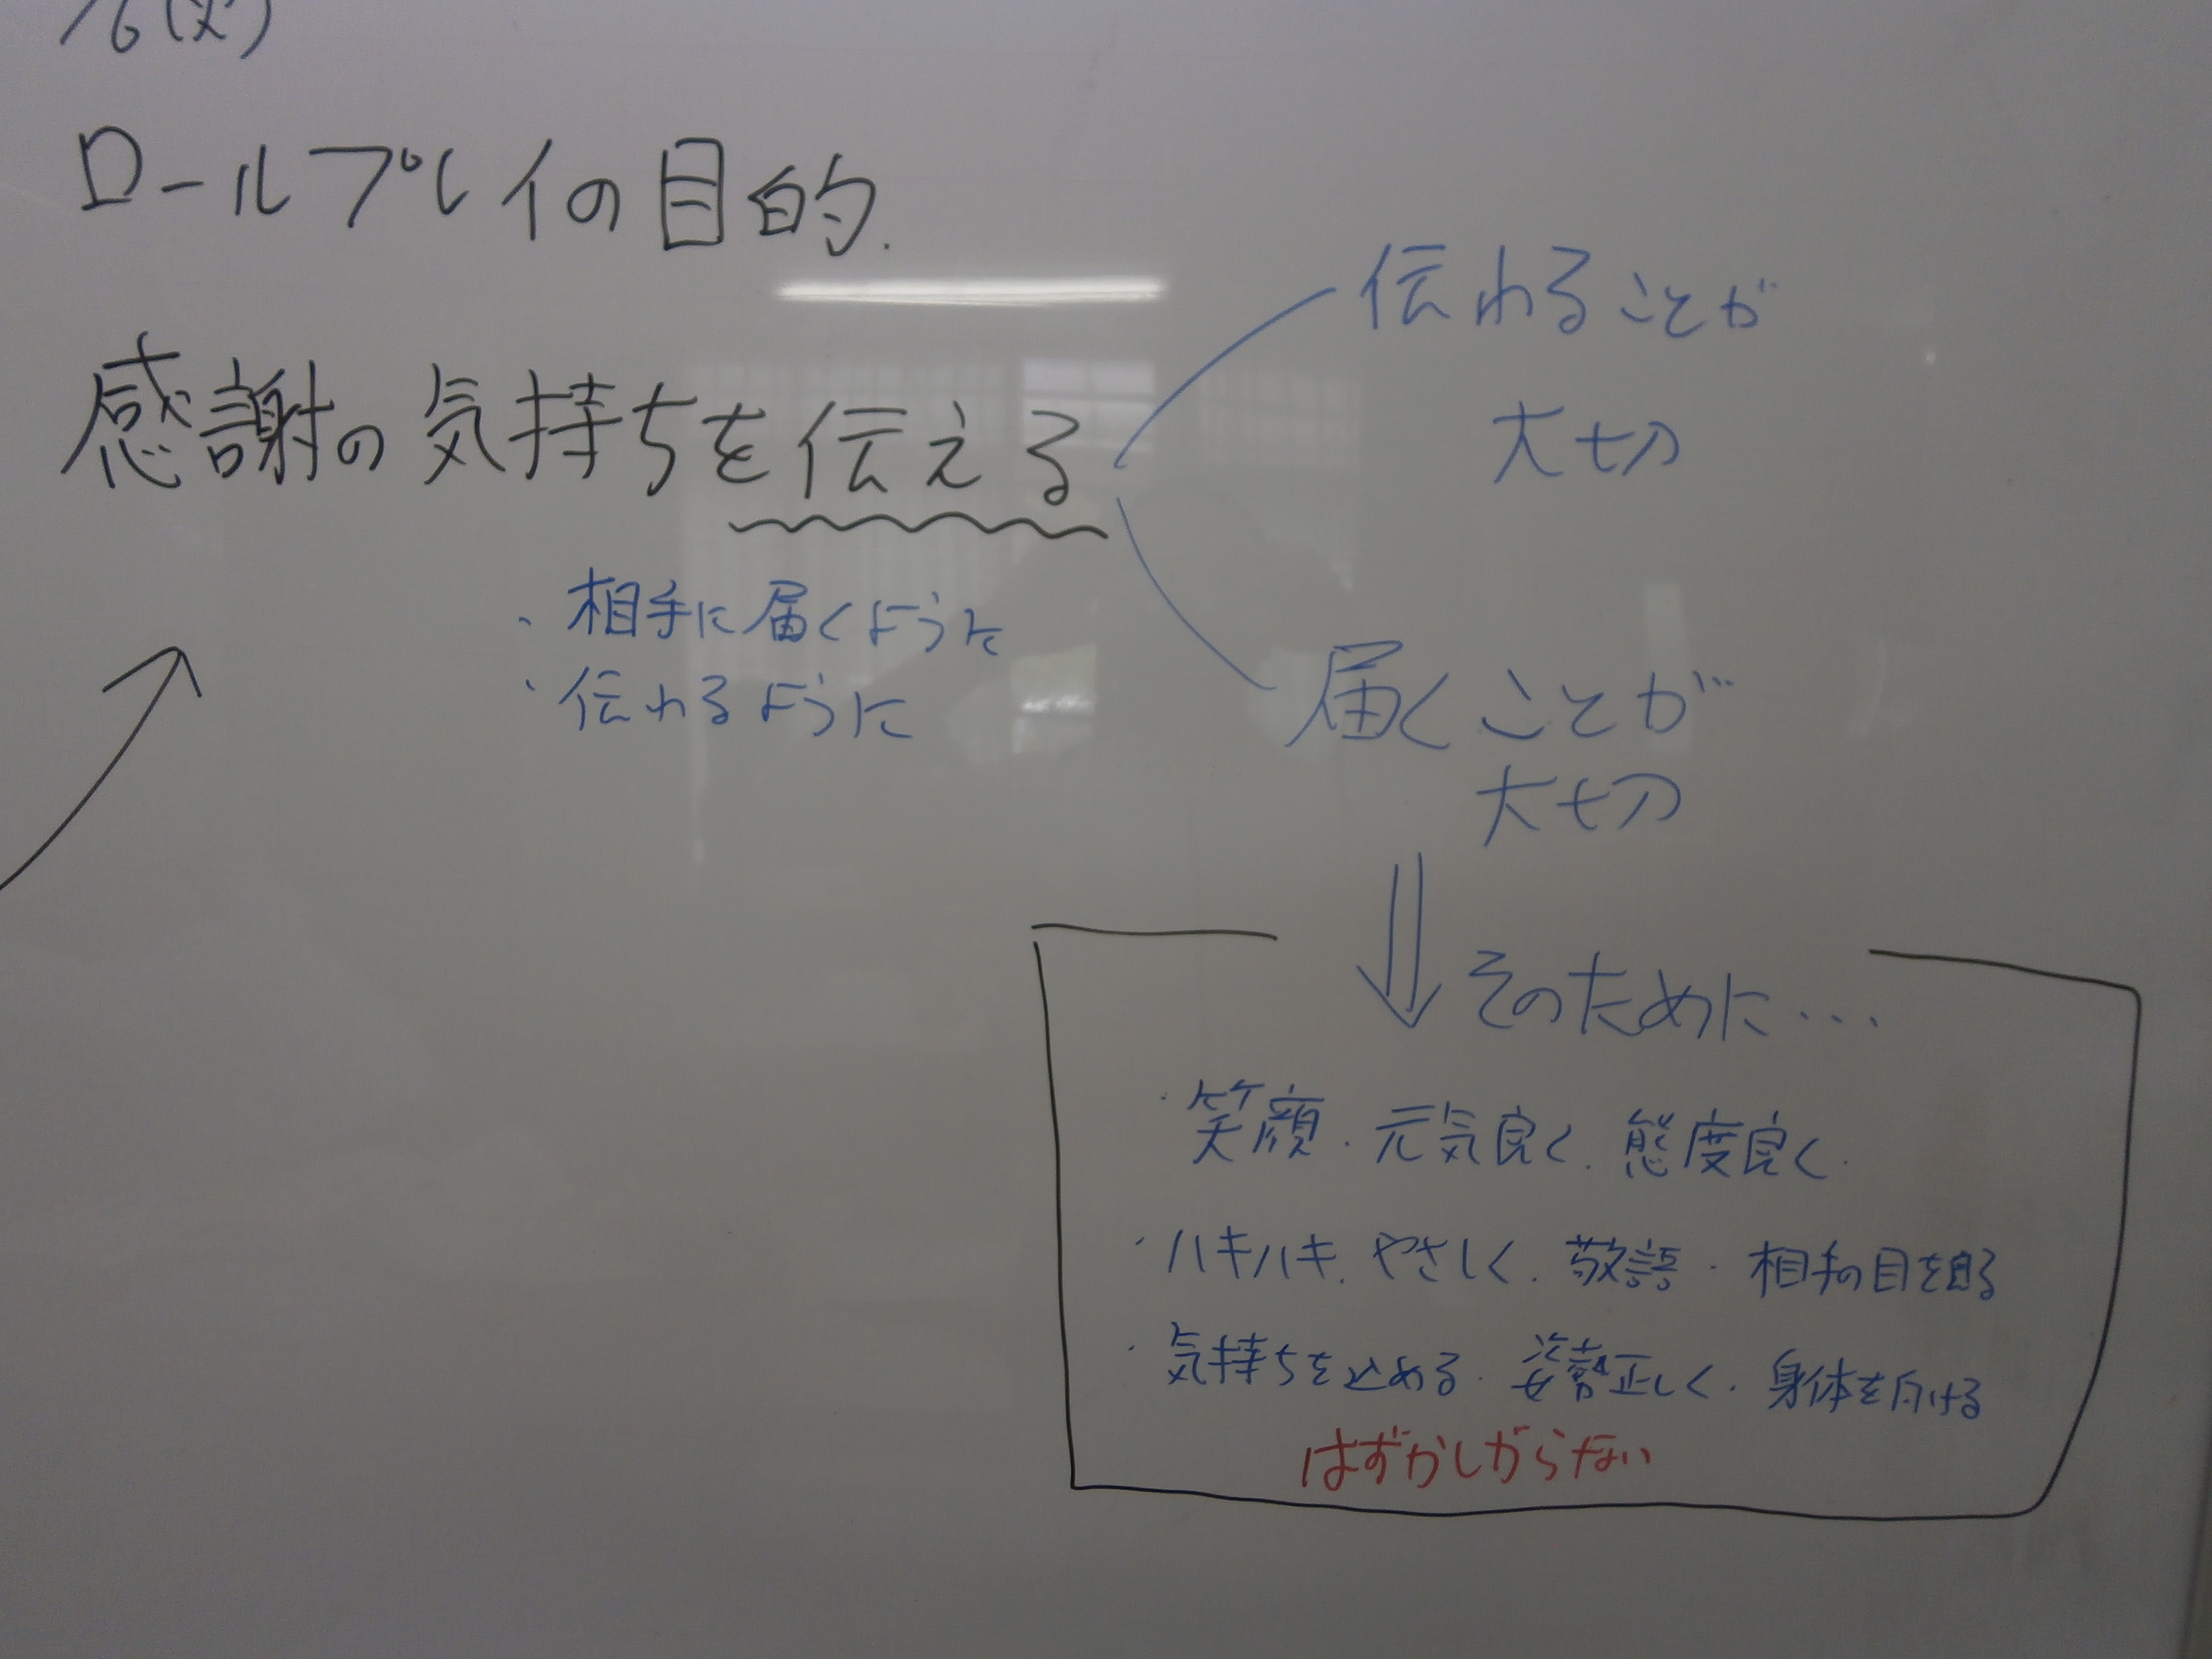 /6(火)
ロールプレイの目的.
感謝の気持ちを伝える
・相手に届くように
・伝わるように
伝わることが
大切
届くことが
大切
そのために…
・笑顔・元気良く・態度良く・
・ハキハキ・やさしく・敬語・相手の目を見る
・気持ちを込める・姿勢正しく・身体を向ける
はずかしがらない